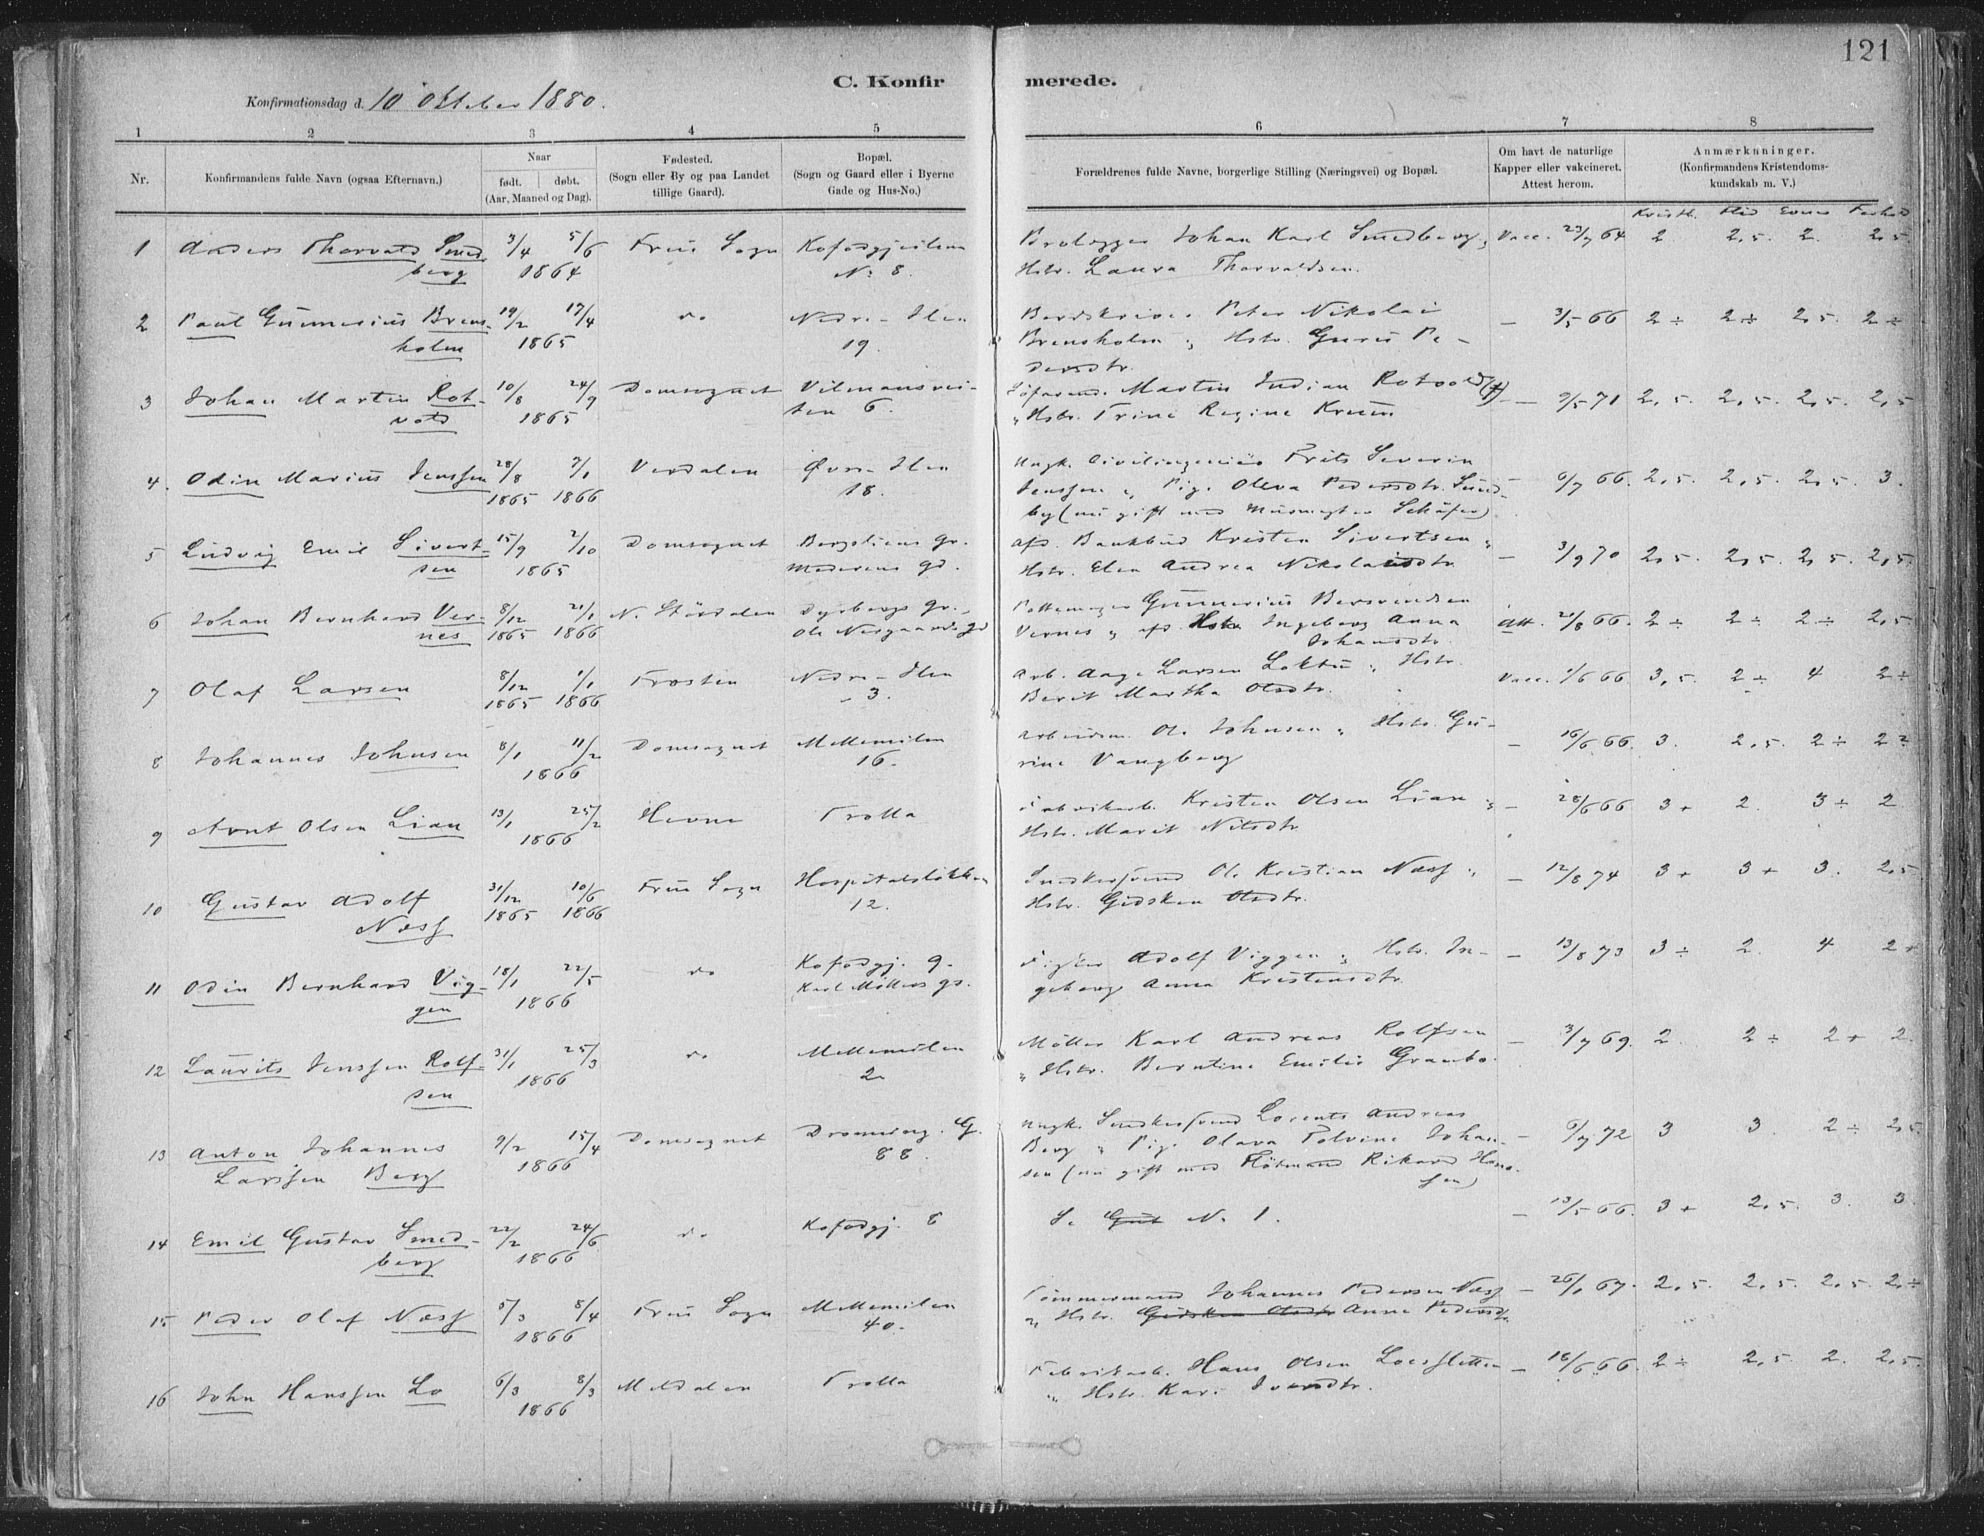 121
C. Konfirmerede.
Konfirmationsdag d. 10 Oktober 1880.
1 2 3 4 5 6 7 8
Nr. Konfirmandens fulde Navn (ogsaa Efternavn.) Naar født. døbt. (Aar, Maaned og Dag). Fødested. (Sogn eller By og paa Landet tillige Gaard). Bopæl. (Sogn og Gaard eller i Byerne Gade og Hus-No.) Forældrenes fulde Navne, borgerlige Stilling (Næringsvei) og Bopæl. Om havt de naturlige Kapper eller vakcineret. Attest herom. Anmærkninger. (Konfirmandens Kristendomskundskab m. V.)
Kristk. Flid Evner Forhold
1 Anders Thorvald Smed- 3/4 5/6 Frue Sogn Kofodgjeilen Brolægger Johan Karl Smedberg, Vacc. 23/7 64 2. 2,5. 2. 2,5
berg 1864 No 8. Hstr. Laura Thorvaldsen.
2 Paul Gunnerius Brens- 19/2 17/4 do Nedre-Ilen Bordskriver Peter Nikolai — 3/5 66 2÷ 2÷ 2,5. 2÷
holm 1865 19. Brensholm, Hstr. Guru Pe-
dersdtr.
3 Johan Martin Rot- 10/8 24/9 Domsognet Vilmansvei- Martin Indian Rotvold (†) — 9/5 71 2,5. 2,5. 2,5. 2,5
vold 1865 ten 6. " Hstr. Trine Regine Kruun
4. Odin Marius Jenssen 28/8 7/1 Verdalen Øvre-Ilen Ungk. Civilingeniør Frits Severin — 6/7 66. 2,5. 2,5. 2,5. 3.
1865 1866 18. Jenssen, Pige Oleva Pedersdtr. Smed-
by (nu gift med Schäfer)
5 Ludvig Emil Sivert- 15/9 2/10 Domsognet afd. Bankbud Kristen Sivertsen, — 3/9 70 2,5. 2,5. 2,5. 2,5.
sen 1865 Hstr. Elen Andrea Nikolaisdtr
6 Johan Bernhard Ver- 8/12 21/1 N. Stördalen Dyrborgs gr. Pottemager Gunnerius Bersvendsen Att. 21/8 66. 2÷ 2÷ 2÷ 2,5
nes 1865 1866 Ole Nesgaards gd Vernes, afd. Hstr. Ingeborg Anna
Johansdtr.
7 Olaf Larsen 8/12 1/1 Frosten Nedre-Ilen Arb. Aage Larsen Loktu, Hstr. Vacc. 1/6 66 3,5. 2÷ 4 2÷
1865 1866 3. Berit Martha Olsdtr.
8 Johannes Johnsen 8/1 11/2 Domsognet Mellemilen Arbeidsm. Ole Johnsen, Hstr. Gu- — 16/6 66. 3. 2,5. 2÷ 2÷
1866 16. rine Vangberg
9 Arnt Olsen Lian 13/1 25/2 Hevne Trolla Fabrikarb. Kristen Olsen Lian, — 28/6 66 3+ 2. 3÷ 2
1866 Hstr. Marit Nilsdtr.
10 Gustav Adolf 31/12 10/6 Frue Sogn Hospitalsløkken Snedkersvend Ole Kristian Næss, — 12/8 74 3+ 3+ 3. 2,5
Næss 1865 1866 12. Hstr. Gidsken Olsdtr.
11 Odin Bernhard Vig- 18/1 22/5 do Kofodgj. 9. Adolf Viggen, Hstr. In- — 13/8 73 3÷ 2. 4 2+
gen 1866 Karl Møllers gd. geborg Anna Kristensdtr.
12 Laurits Jenssen Rolf- 31/1 25/3 do Mellemilen Møller Karl Andreas Rolfsen — 3/7 69. 2 2÷ 2+ 2.
sen 1866 2 " Hstr. Berntine Emilie Granbo.
13 Anton Johannes 9/2 15/4 Domsognet Dronning. G. Ungk. Snedkersvend Lorents Andreas — 6/7 72 3 3. 2÷ 2,5.
Larssen Berg 1866 88. Berg, Pige Olava Polvine Johan-
sen (nu gift med Flötmand Rikard Hans-
sen)
14 Emil Gustav Smed- 22/2 24/6 do Kofodgj. 8 S. Gut No 1. — 13/5 66. 3+ 2,5. 3. 3
berg 1866
15 Peder Olaf Næss 5/3 8/4 Frue Sogn Mellemilen Tømmermand Johannes Pedersen Næss — 26/1 67. 2,5. 2,5. 2,5. 2÷
1866 40. " Hstr. Gidsken Olsdtr Anne Pedersdtr.
16 John Hanssen Lo 6/3 8/3 Meldalen Trolla Fabrikarb. Hans Olsen Loessletten — 18/6 66. 2÷ 2,5 2. 2,5.
1866 " Hstr. Kari Iversdtr.